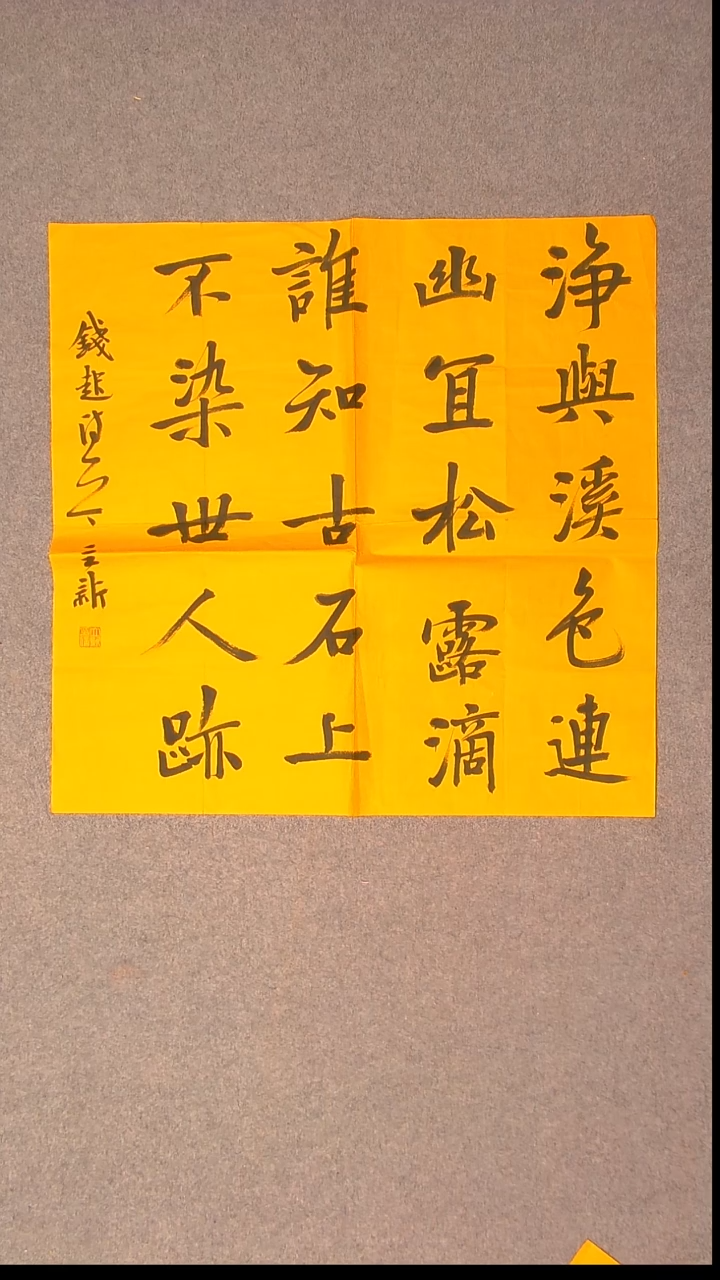 淨與溪色連
幽宜松露滴
誰知古石上
不染世人跡
錢起詩一首